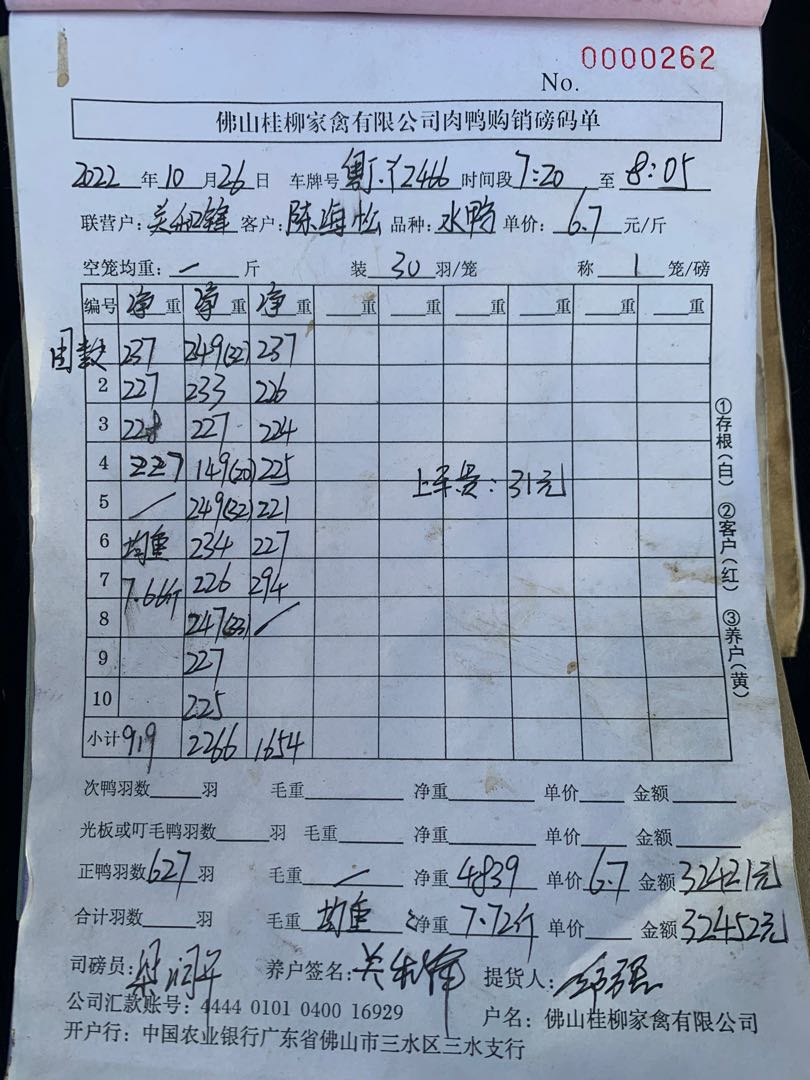 0000262
No.
佛山桂柳家禽有限公司肉鸭购销磅码单
2022 年 10 月 26 日 车牌号 2466 时间段 7:20 至 8:05
联营户: 关和锋 客户: 陈海松 品种: 水鸭 单价: 6.7 元/斤
空笼均重: 一 斤 装 30 羽/笼 称 1 笼/磅
编号 净重 净重 净重 重 重 重 重 重 重
237 249(32) 237
2 227 233 226
3 228 227 224
4 227 149(20) 225
5 / 249(32) 221
上车费: 31元
6 均重 234 227
7 7.66斤 226 294
8 247(33) /
9 227
10 225
小计 919 2266 1654
①存根(白) ②客户(红) ③养户(黄)
次鸭羽数 羽 毛重 净重 单价 金额
光板或叮毛鸭羽数 羽 毛重 净重 单价 金额
正鸭羽数 627 羽 毛重 一 净重 4839 单价 6.7 金额 32421元
合计羽数 羽 毛重 均重: 净重 7.72斤 单价 金额 32452元
司磅员: 养户签名: 提货人:
公司汇款账号: 4444 0101 0400 16929 户名: 佛山桂柳家禽有限公司
开户行: 中国农业银行广东省佛山市三水区三水支行